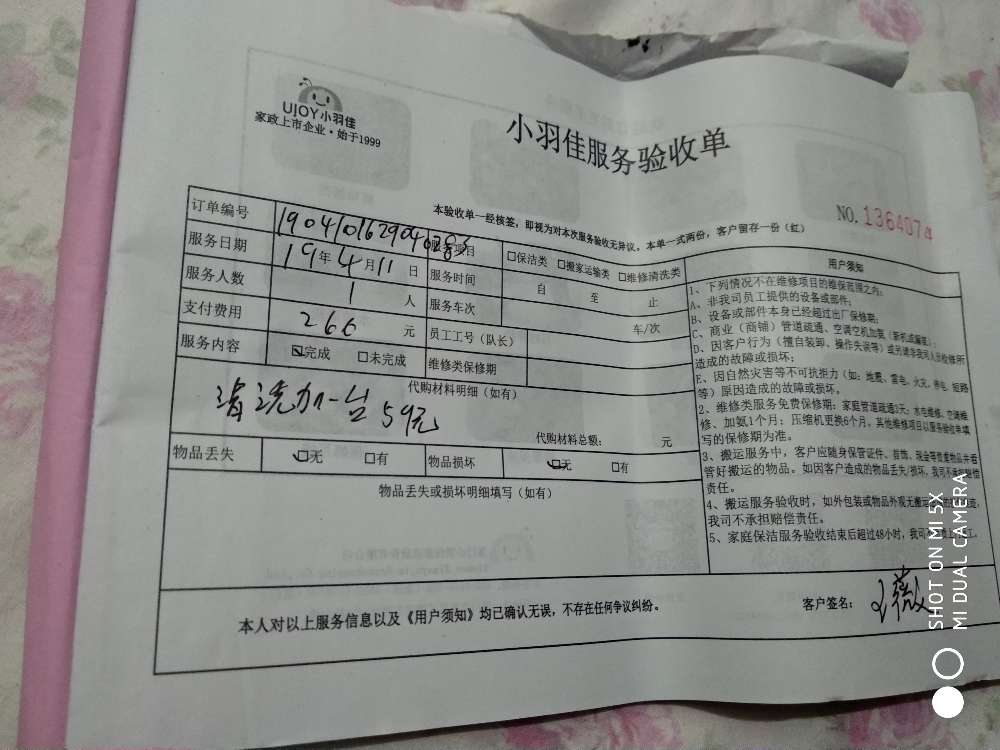 UJOY小羽佳
家政上市企业·始于1999
小羽佳服务验收单
本验收单一经核签，即视为对本次服务验收无异议，本单一式两份，客户留存一份（红）
NO. 1364074
订单编号 服务项目 □保洁类 □搬家运输类 □维修清洗类
服务日期 19年4月11日 服务时间 自 至 止
服务人数 1 人 服务车次 车/次
支付费用 266 元 员工工号（队长）
服务内容 ☑完成 □未完成 维修类保修期
代购材料明细（如有）
清洗加一台59元
代购材料总额： 元
物品丢失 ☑无 □有 物品损坏 ☑无 □有
物品丢失或损坏明细填写（如有）
用户须知
1、下列情况不在维修项目的维保范围之内：
A、非我司员工提供的设备或部件；
B、设备或部件本身已经超过出厂保修期；
C、商业（商铺）管道疏通、空调空机加氨（新机或漏氨）；
D、因客户行为（擅自装卸、操作失误等）或另请非我司人员检修所
造成的故障或损坏；
E、因自然灾害等不可抗拒力（如：地震、雷电、火灾、停电、短路
等）原因造成的故障或损坏。
2、维修类服务免费保修期：家庭管道疏通3天；水电维修、空调维
修、加氨1个月；压缩机更换6个月，其他维修项目以服务验收单填
写的保修期为准。
3、搬运服务中，客户应随身保管证件、首饰、现金等贵重物品并看
管好搬运的物品。如因客户造成的物品丢失/损坏，我司不承担赔偿
责任。
4、搬运服务验收时，如外包装或物品外观无搬运
我司不承担赔偿责任。
5、家庭保洁服务验收结束后超过48小时，我司
本人对以上服务信息以及《用户须知》均已确认无误，不存在任何争议纠纷。
客户签名： 王薇
SHOT ON MI 5X
MI DUAL CAMERA